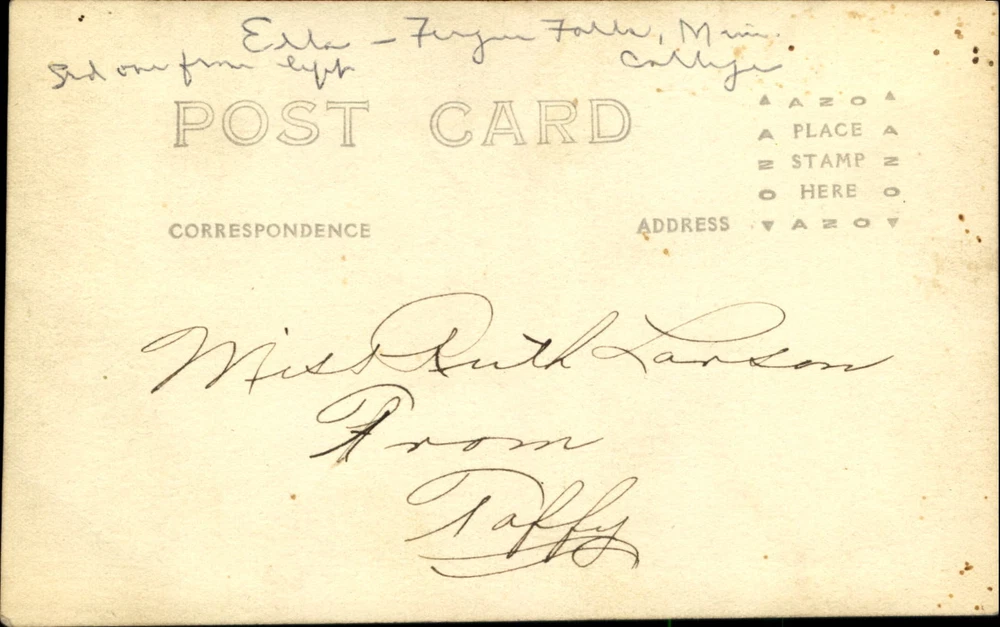 Ella - Fergus Falls, Minn.
3rd one from left College
POST CARD
AZO
A PLACE A
Z STAMP Z
O HERE O
AZO
CORRESPONDENCE ADDRESS
Miss Ruth Larson
From
Taffy